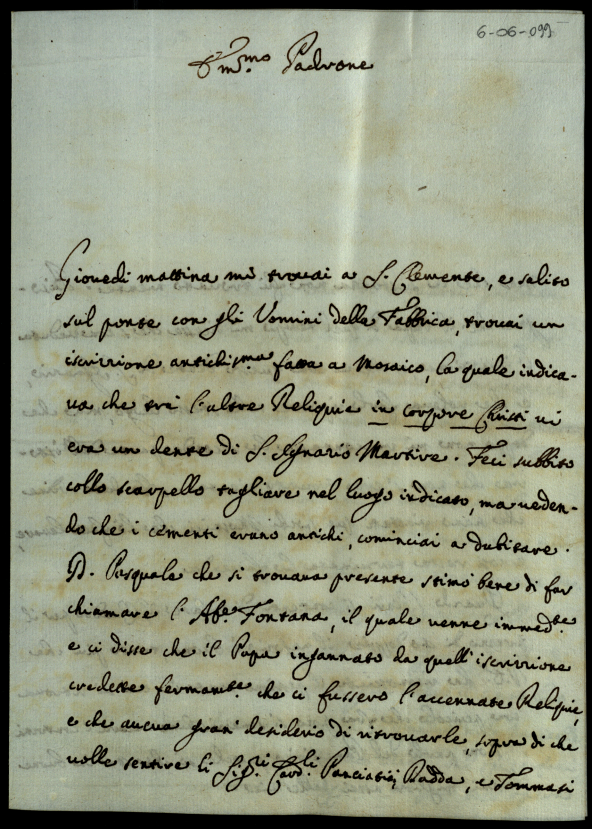 6-06-099
Em.mo Padrone
Giovedi mattina mi trovai a S. Clemente, e salito
sul ponte con gli Uomini della Fabbrica, trovai un
iscrizione antichis.ma fatta a Mosaico, la quale indica-
va che trà l'altre Reliquie in corpore Christi vi
era un dente di S. Ignazio Martire. Feci subbito
collo scarpello tagliare nel luogo indicato, ma veden-
do che i cementi erano antichi, cominciai a dubitare.
D. Pasquale che si trovava presente stimò bene di far
chiamare l'Ab.e Fontana, il quale venne immed.te
e ci disse che il Papa ingannato da quell'iscrizione
credette fermam.te che ci fussero l'accennate Reliquie,
e che aveva gran desiderio di ritrovarle, sopra di che
volle sentire li Sig.ri Card.li Panciatici, Badda, e Tommasi